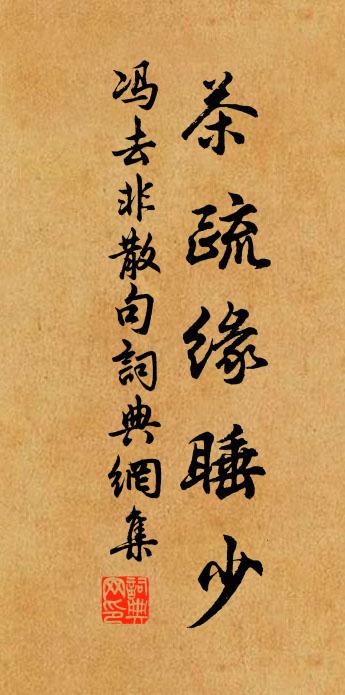 茶疏缘睡少
冯去非散句詞典網集
詞典网印